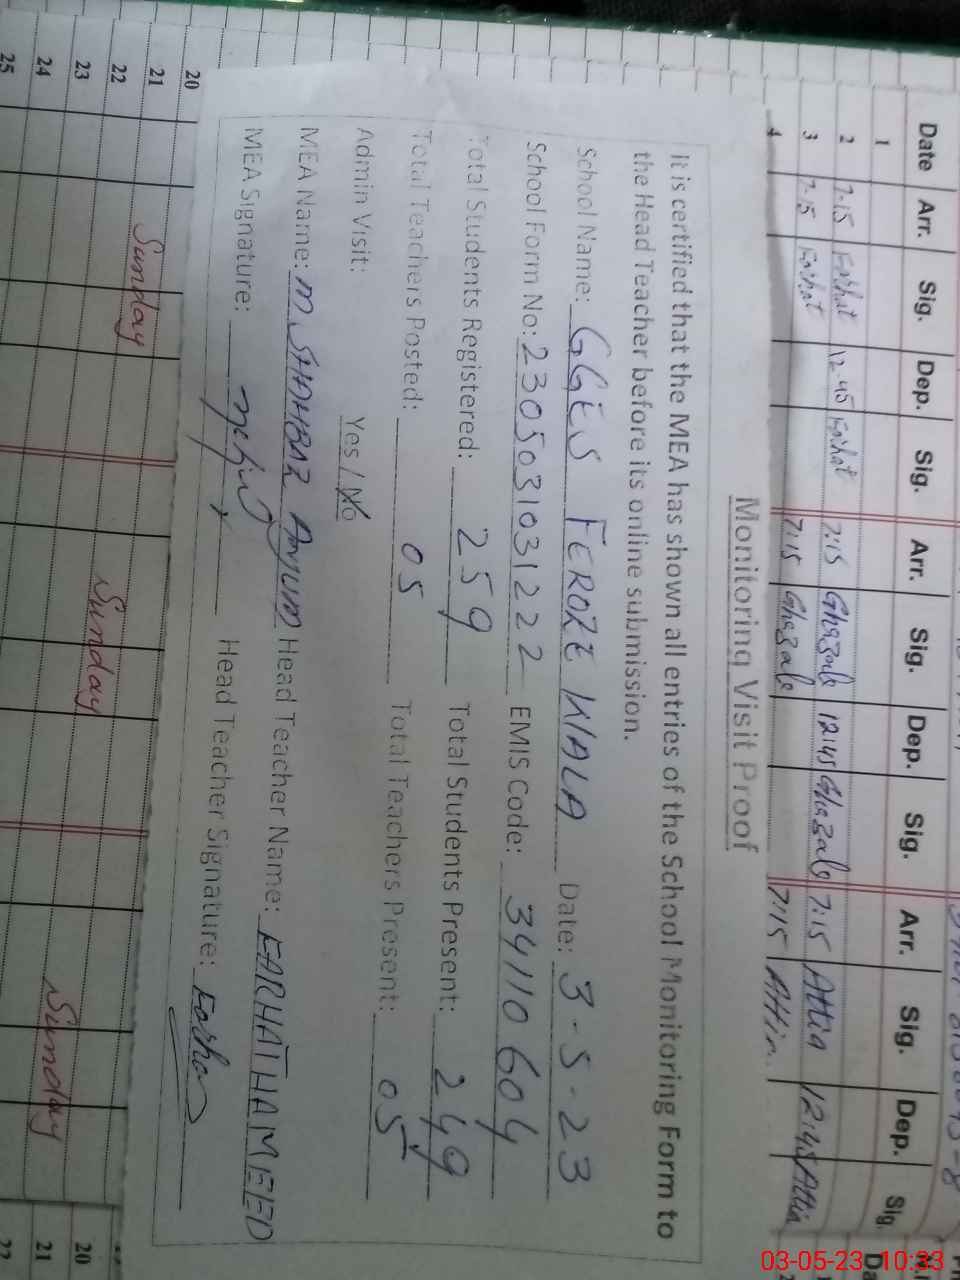 Date Arr. Sig. Dep. Sig. Arr. Sig. Dep. Sig. Arr. Sig. Dep. Sig.
1
2 7-15 Farhat 12:45 Farhat 7:15 Ghazala 12:45 Ghazala 7:15 Attia 12:45 Attia
3 7-15 Farhat 7:15 Ghazala 7:15 Attia
4
Monitoring Visit Proof
It is certified that the MEA has shown all entries of the School Monitoring Form to
the Head Teacher before its online submission.
School Name: GGES FEROZE WALA Date: 3-5-23
School Form No: 2305031031222 EMIS Code: 34110604
Total Students Registered: 259 Total Students Present: 249
Total Teachers Posted: 05 Total Teachers Present: 05
Admin Visit: Yes / No
MEA Name: M SHAHBAZ Anjum Head Teacher Name: FARHAT HAMEED
MEA Signature: Head Teacher Signature: Farhat
20
21 Sunday
22 Sunday
23 Sunday
24
25
20
21
22
03-05-23 10:33